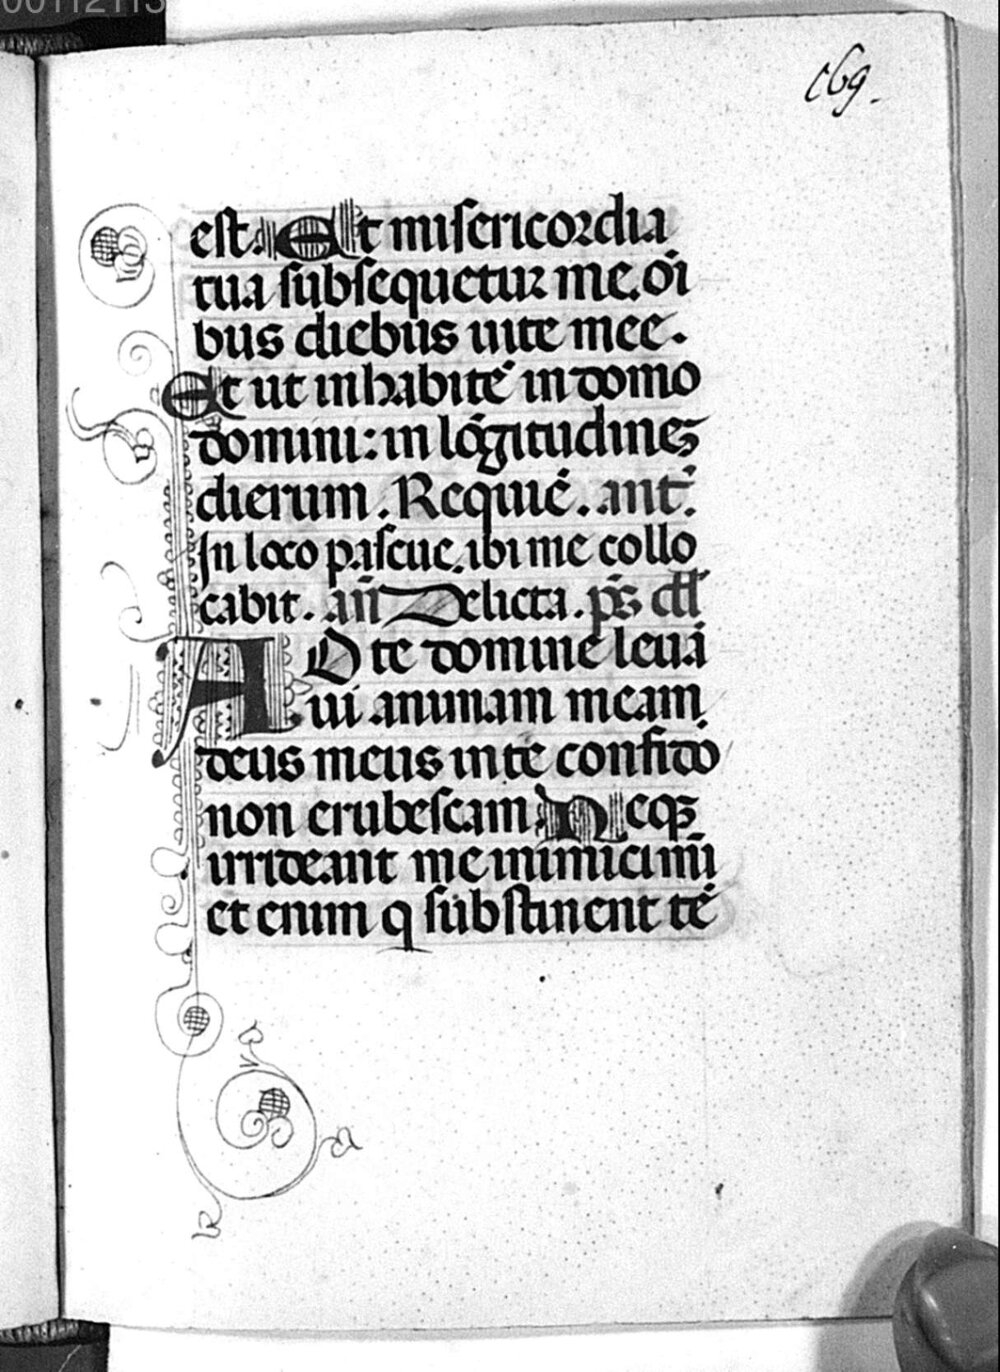 00112113
c69.
est. Et misericordia
tua subsequetur me. oi̅
bus diebus uite mee.
Et ut inhabite̅ in domo
domini: in lo̅gitudineȝ
dierum. Requie̅. ant̅.
In loco pascue. ibi me collo
cabit. an̅ Delicta. ps̅ dd̅
AD te domine leua
ui animam meam
deus meus in te confido
non erubescam. Neqȝ
irrideant me inimici mi̅
etenim q substinent te